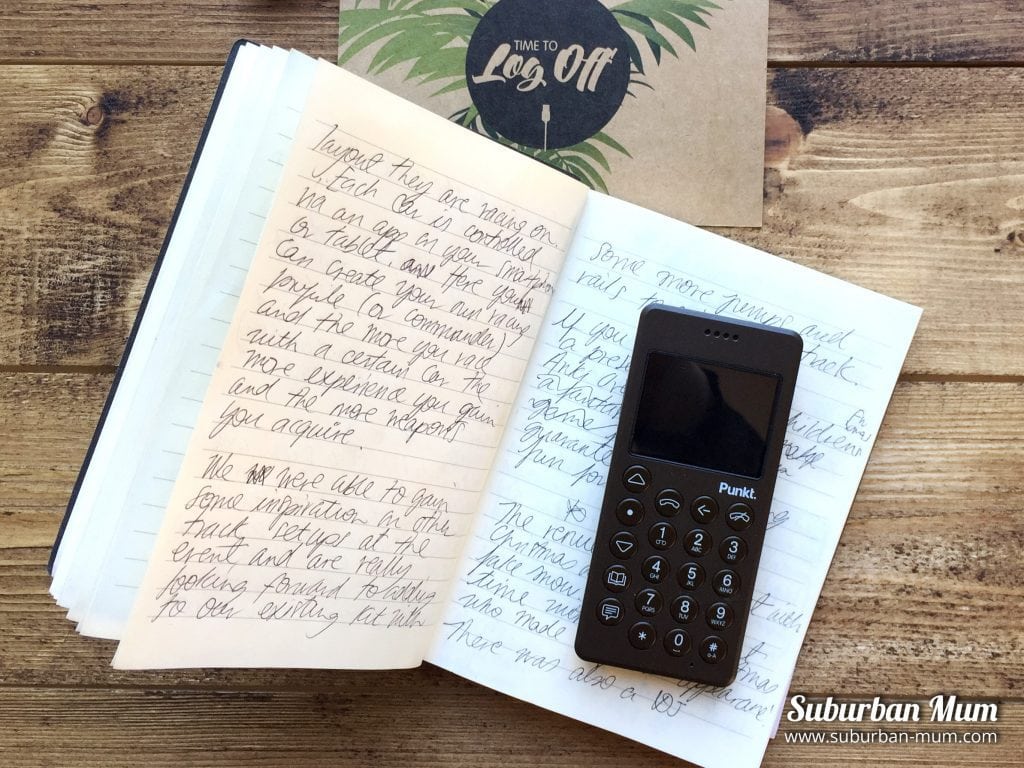 TIME TO
Log Off
layout they are racing on.
Each car is controlled
via an app on your smartphone
or tablet. Here you
can create your own racing
profile (or commander)
and the more you race
with a certain car the
more experience you gain
and the more weapons
you acquire.
We were able to gain
some inspiration on other
track setups at the
event and are really
looking forward to adding
to our existing kit with
Some more jumps and
rails to track.
If you
a pres
Anki
children
game
guarante
fun for
The venue
Christmas
fake snow
time
who made
There was also a DJ
Punkt.
1
2 ABC
3 DEF
4 GHI
5 JKL
6 MNO
7 PQRS
8 TUV
9 WXYZ
* 0 #
Suburban Mum
www.suburban-mum.com